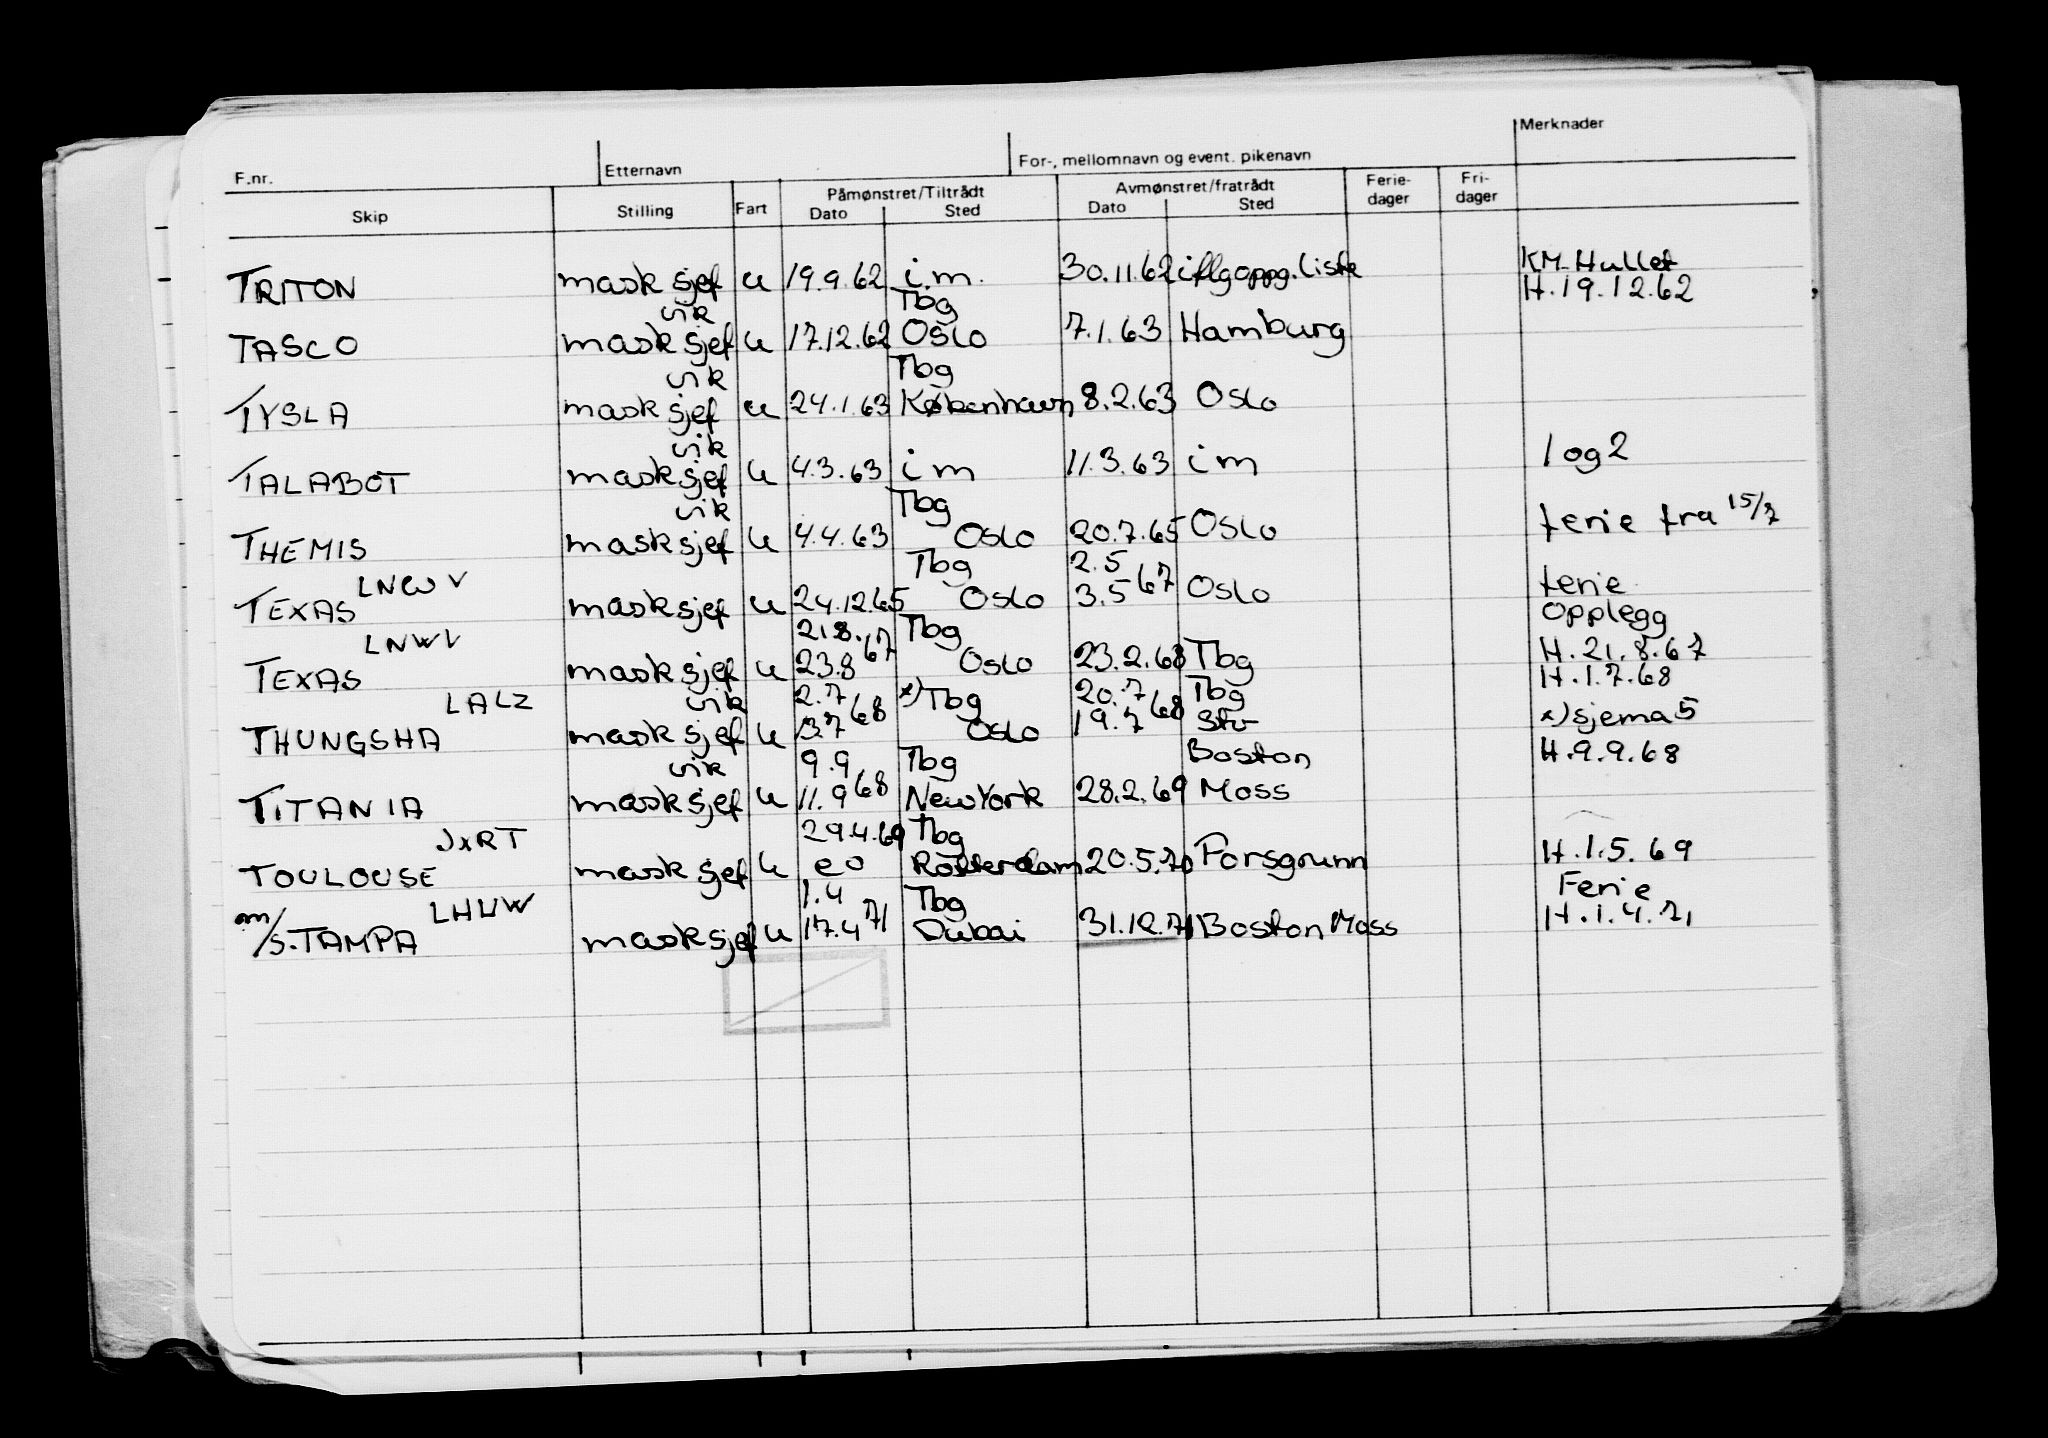 F.nr. Etternavn For-, mellomnavn og event. pikenavn Merknader
Skip Stilling Fart Påmønstret/Tiltrådt Dato Sted Avmønstret/fratrådt Dato Sted Ferie-dager Fri-dager
TRITON mask sjef u 19.9.62 i.m. 30.11.62 iflg oppg. liste KM-Hullet
H.19.12.62
vik Tbg
TASCO mask sjef u 17.12.62 Oslo 7.1.63 Hamburg
vik Tbg
TYSLA mask sjef u 24.1.63 København 8.2.63 Oslo
vik
TALABOT mask sjef u 4.3.63 i m 11.3.63 i m 1 og 2
vik Tbg
THEMIS mask sjef u 4.4.63 Oslo 20.7.65 Oslo ferie fra 15/7
LNWV Tbg 2.5
TEXAS mask sjef u 24.12.65 Oslo 3.5 67 Oslo ferie
opplegg
LNWV 21.8. Tbg
TEXAS mask sjef u 23.8 67 Oslo 23.2.68 Tbg H.21.8.67
H.1.7.68
LALZ vik 2.7 x) Tbg 20.7 Tbg
THUNGSHA mask sjef u 3.7 68 Oslo 19.7 68 Str x) sjema 5
vik 9.9 Tbg Boston H.9.9.68
TITANIA mask sjef u 11.9 68 New York 28.2.69 Moss
JXRT 29.4.69 Tbg
TOULOUSE mask sjef u eo Rotterdam 20.5.70 Porsgrunn H.1.5.69
LHUW 1.4 Tbg Ferie
m/s. TAMPA mask sjef u 17.4 71 Dubai 31.12.71 Boston Moss H.1.4.71